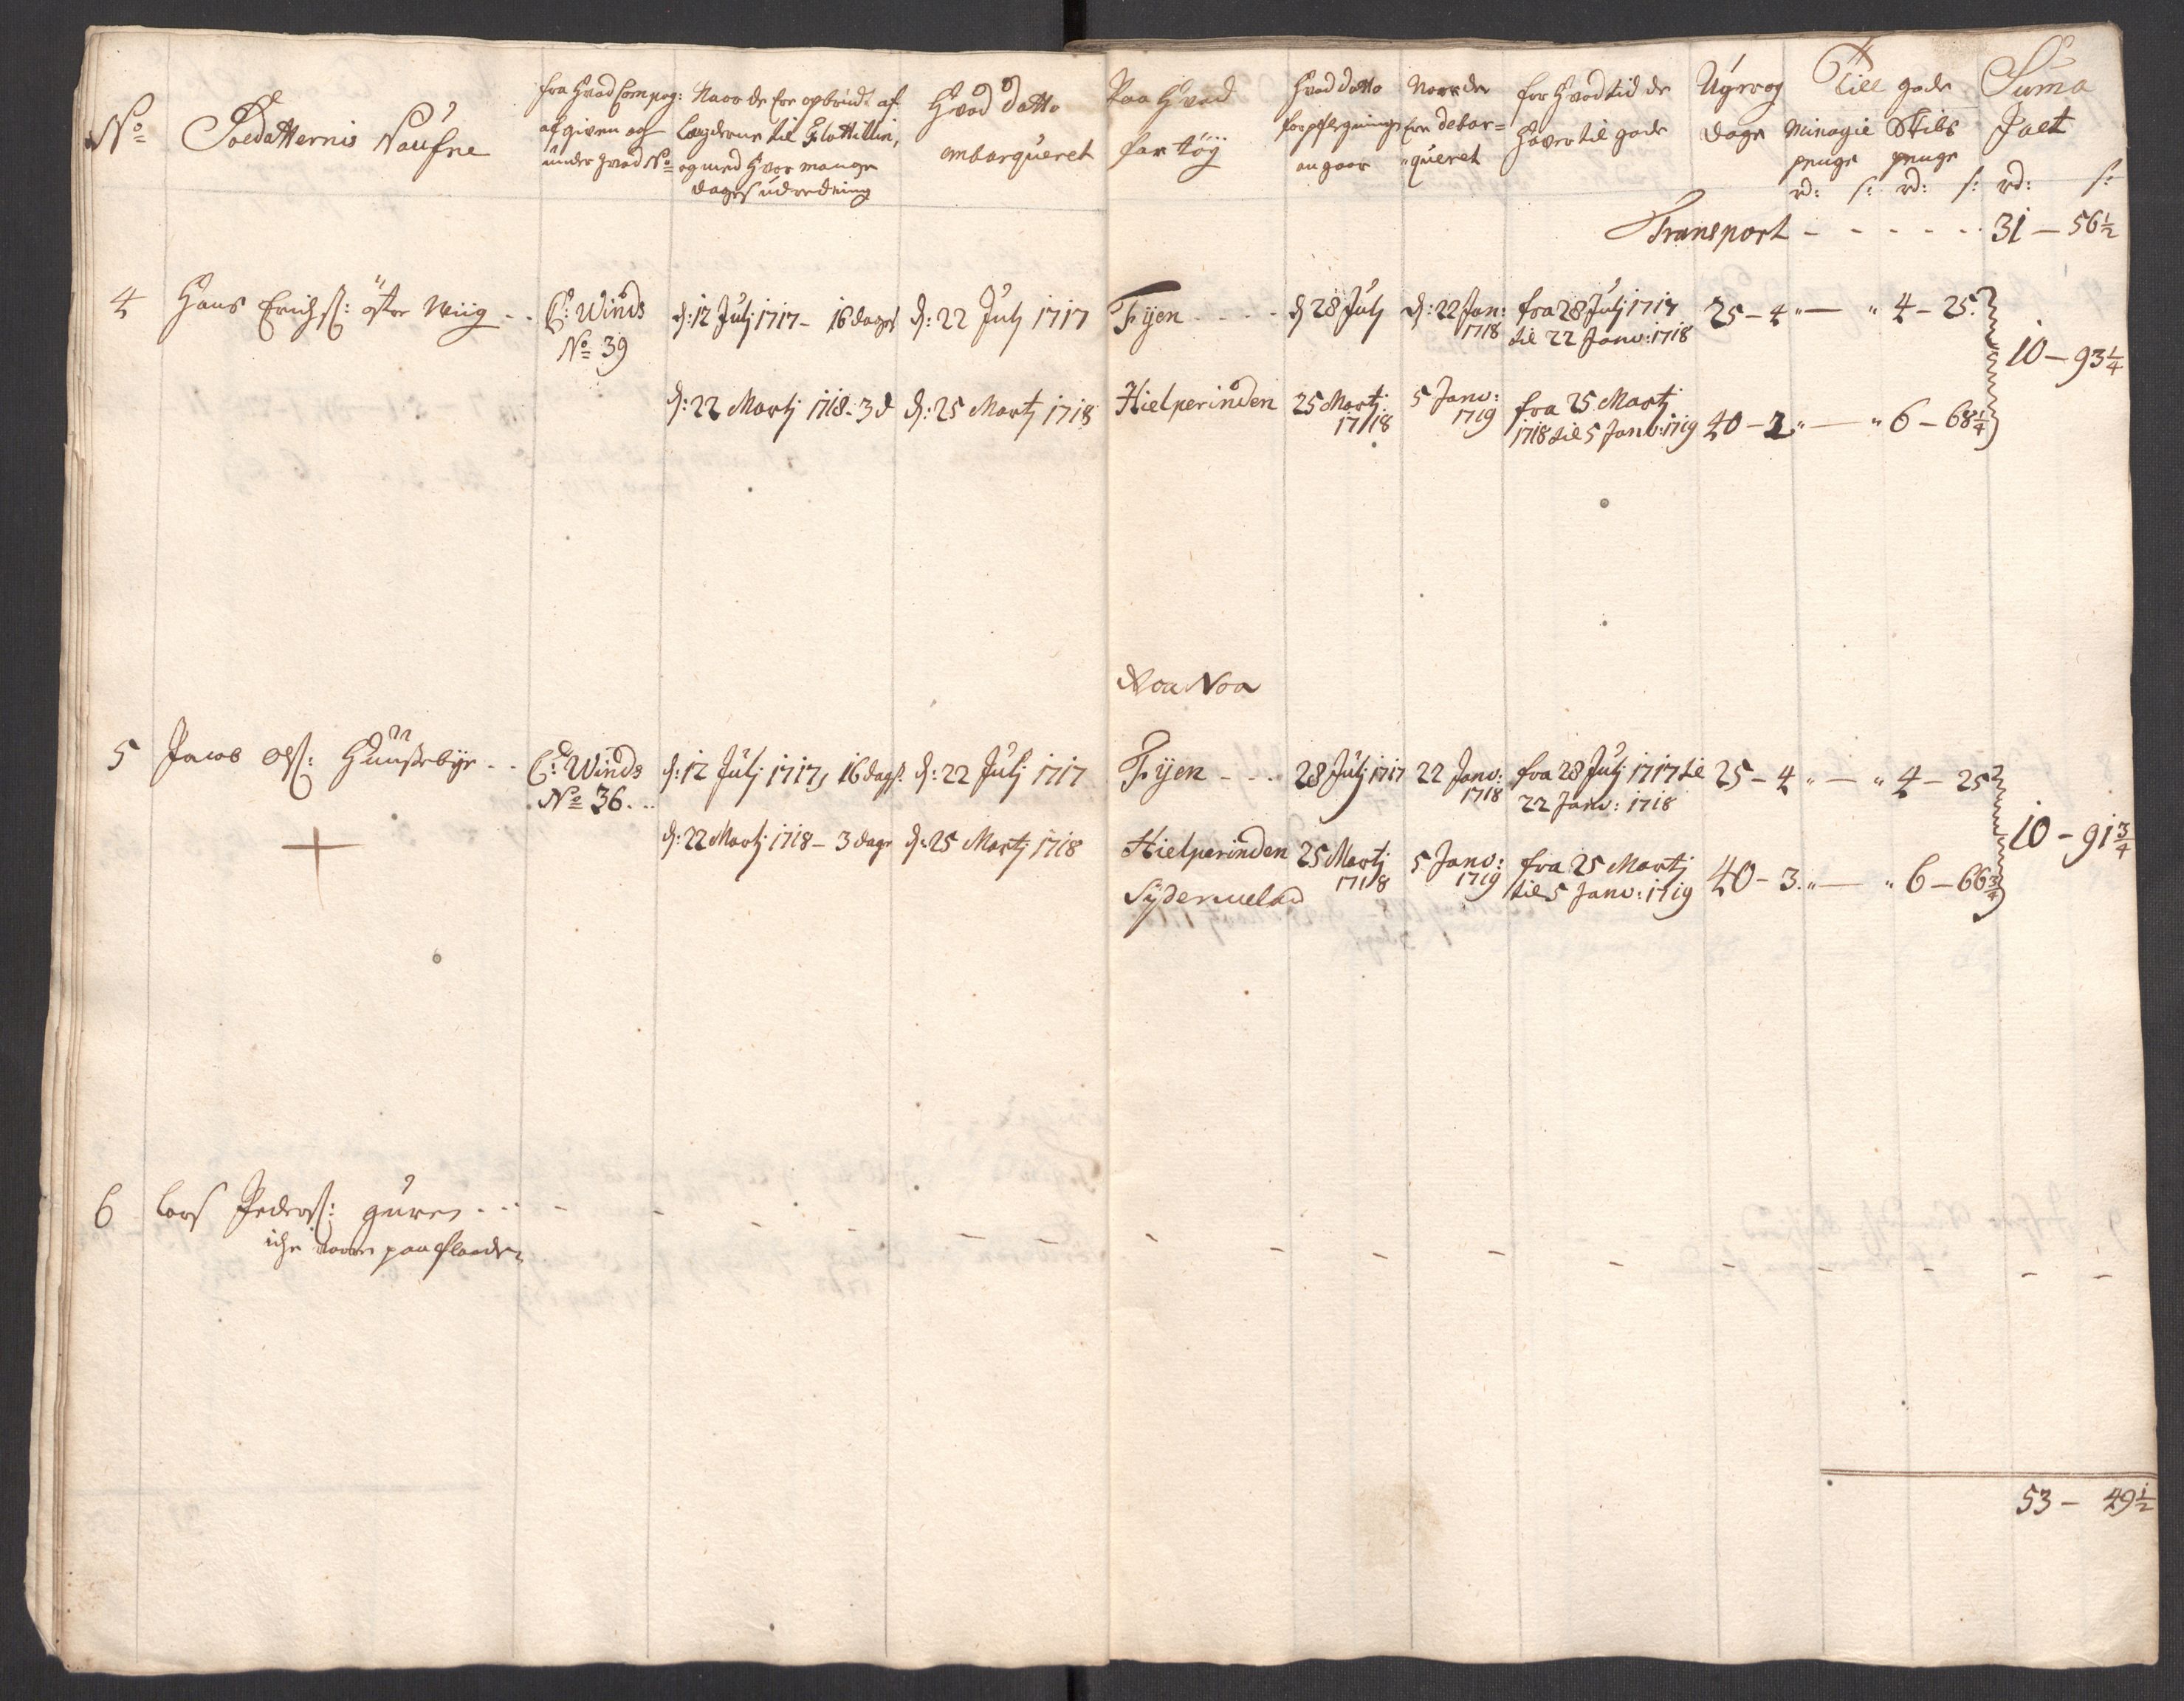 No
Soldatternis Naufne
fra hvad Compag: afgiven og under hvad No
Naar de ere opbrudt af Lægderne til Flottillin, og med hvor mange dages udredning
Hvad datto embarqueret
Paa Hvad fartöy
Hvad datto forpflegningen angaar
Naar de ere debarqueret
for Hvad tid de haver til gode
Uger og dage
Till gode
Minagie penge
Skibs penge
Suma
Jalt
rd: s: rd: s: rd: s:
Transport - - - - - 31 - 56½
4 Hans Erichs: öfre Wiig - - C: Winds No 39
d: 12 Julj 1717 - 16 dages d: 22 Julj 1717 Fyen - - - - d 28 Julj d: 22 Jan: 1718 fra 28 Julj 1717 til 22 Janv: 1718 25 - 4 " — " 4 - 25
10 - 93¼
d: 22 Martj 1718 - 3 d d: 25 Martj 1718 Hielperinden 25 Martj 1718 5 Janv: 1719 fra 25 Martj 1718 til 5 Janv: 1719 40 - 2 " — " 6 - 68¼
Noa Noa
5 Jacob Ols: Huusebye - - C: Winds No 36 - -
d: 12 Julj 1717, 16 dags d: 22 Julj 1717 Fyen - - - 28 Julj 1717 22 Janv: 1718 fra 28 Julj 1717 til 22 Janv: 1718 25 - 4 " — " 4 - 25
10 - 91¾
d: 22 Martj 1718 - 3 dage d: 25 Martj 1718 Hielperinden 25 Martj 1718 5 Janv: 1719 fra 25 Martj til 5 Janv: 1719 40 - 3 " — " 6 - 66¾
6 Lars Peders: - - -
iche paa flaaden
53 - 49½